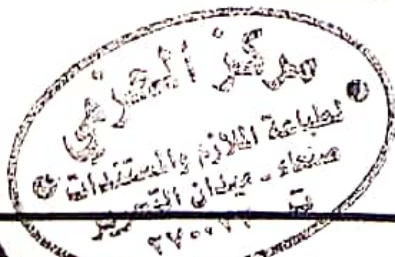 مركز المقرمي
لطباعة الملازم والمستندات
صنعاء - ميدان التحرير